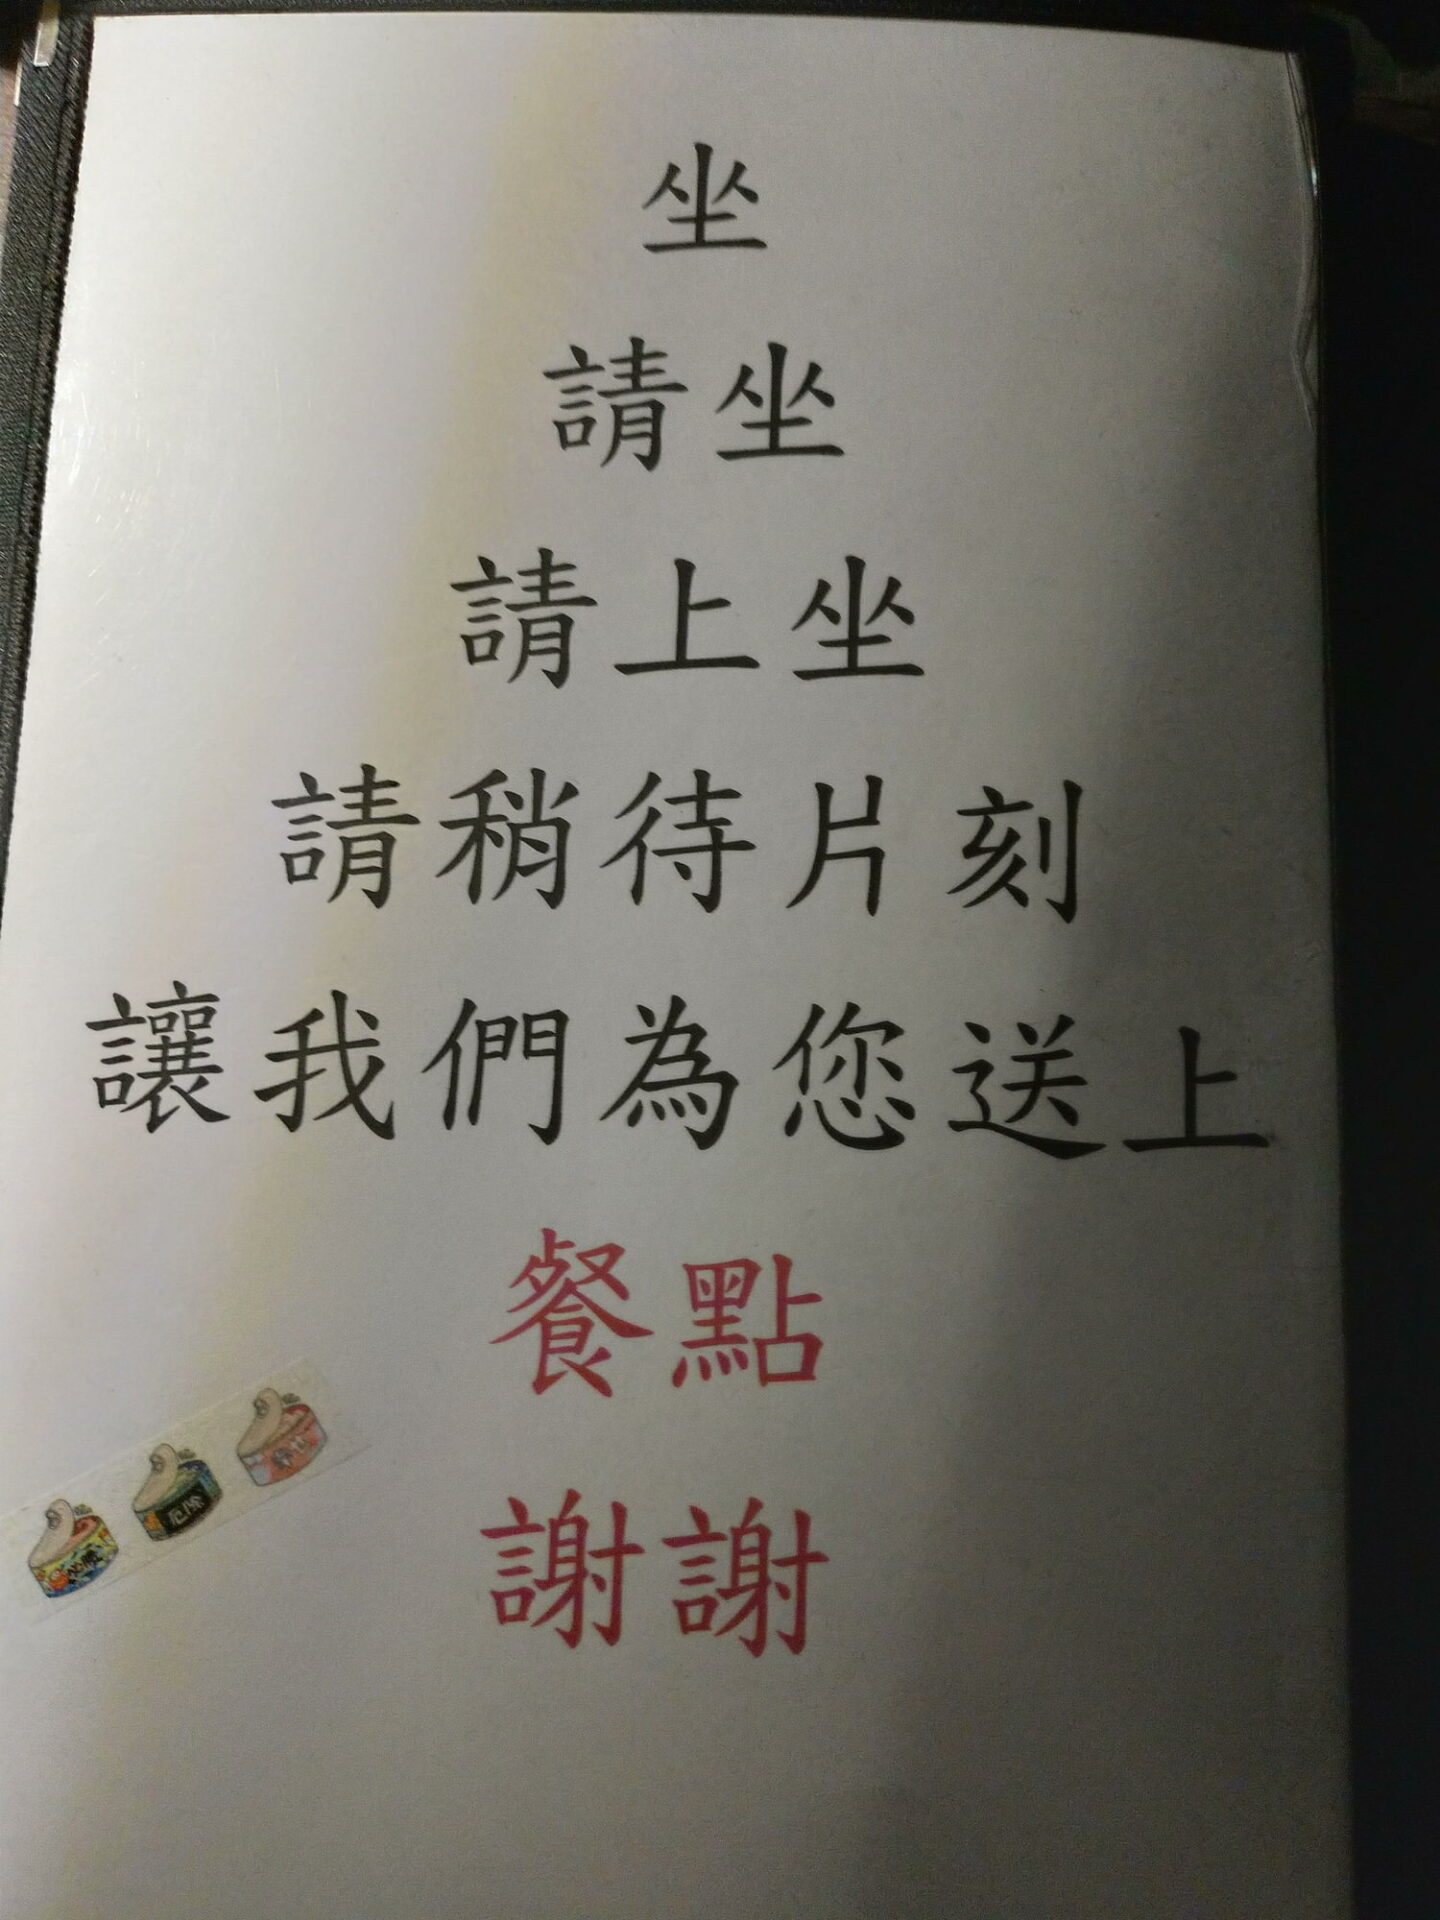 坐
請坐
請上坐
請稍待片刻
讓我們為您送上
餐點
謝謝
厄除